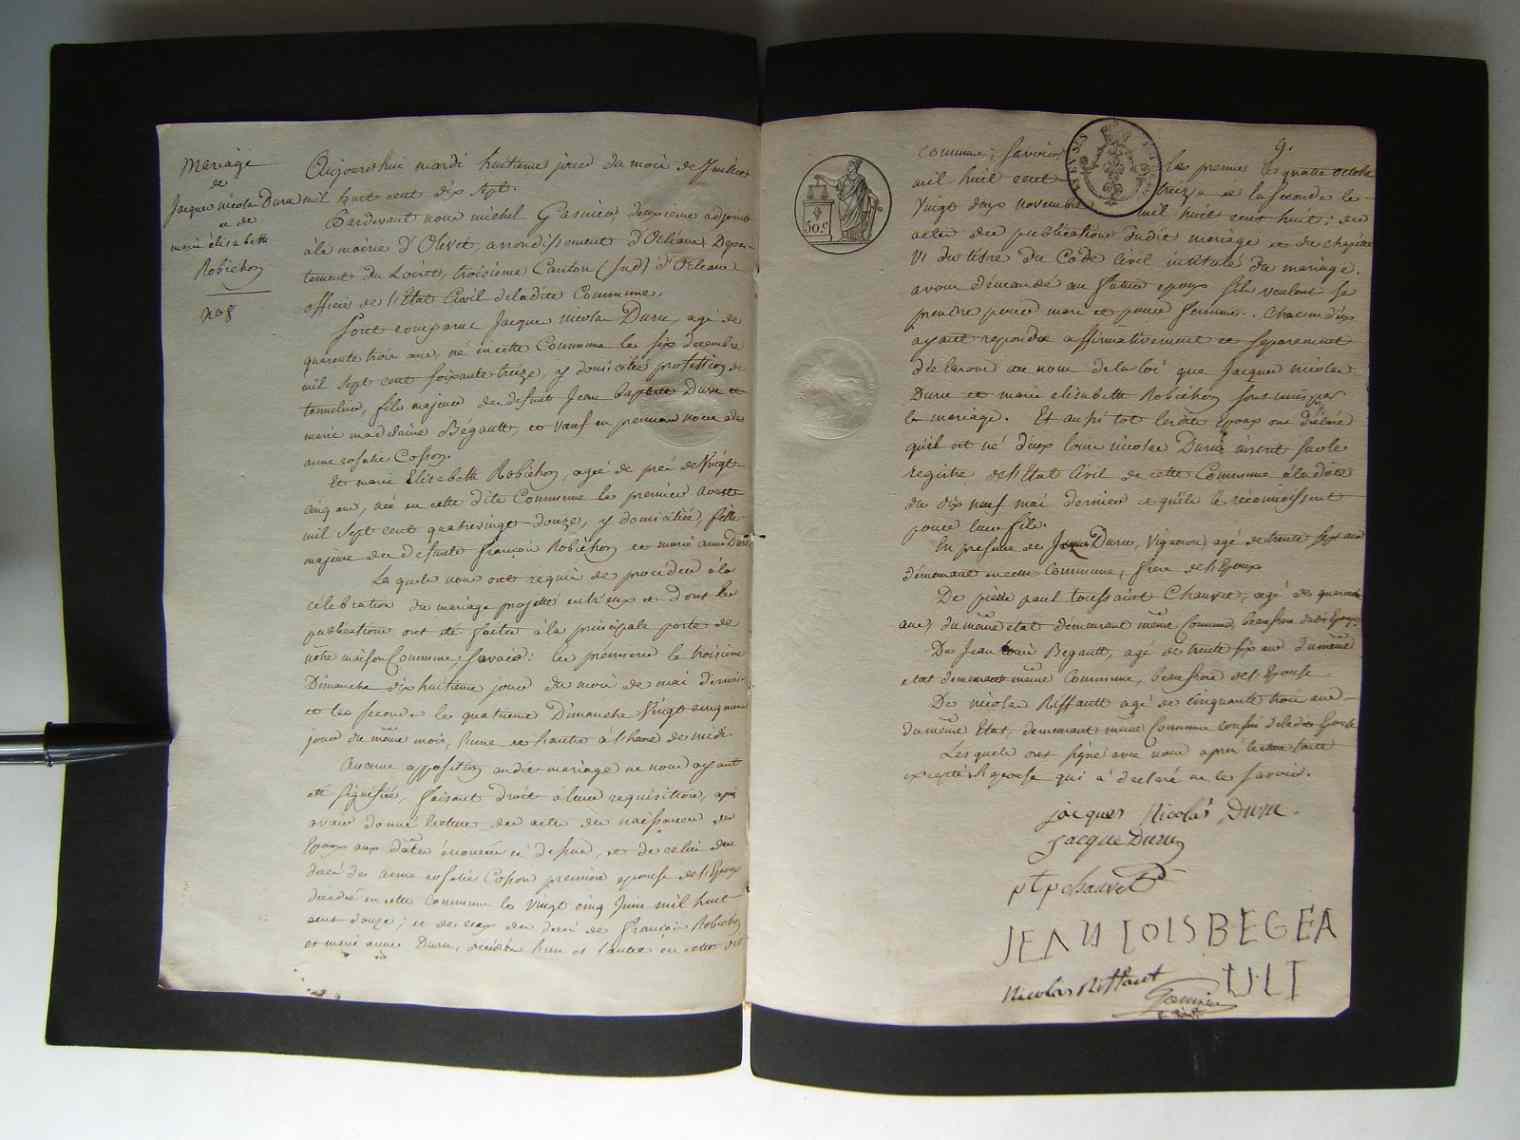 Mariage
de
Jacques nicolas Duru
et de
marie élisabette
Robichon
no 8
Aujourd'hui mardi huitieme jour du mois de Juillet
mil huit cent dix sept.
Pardevant nous michel Garnier, deuxieme adjoint
à la mairie d'Olivet, arrondissement d'Orléans, Depar-
tement du Loiret, troisieme Canton (Sud) d'Orleans
officier de l'Etat Civil de ladite Commune,
Sont comparus Jacques nicolas Duru, agé de
quarente trois ans, né en cette Commune le six decembre
mil sept cent soixante treize, y domicilié profession de
tonnelier, fils majeur des defunts Jean baptiste Duru et
marie madelaine Bégault, et veuf en premiere noce de
anne rosalie Cosson.
Et marie Elisabette Robichon, agée de près de Vingt
cinq ans, née en cette dite Commune le premier
mil sept cent quatrevingt douze, y domiciliée, fille
majeure des defunts françois Robichon et marie anne Duru
Lesquels nous ont requis de proceder à la
célébration du mariage projetté entr'eux et dont les
publications ont été faites à la principale porte de
notre maison Commune, Savoir: la premiere le troisieme
Dimanche dix huitieme jour du mois de mai dernier
et la seconde le quatrieme Dimanche Vingt cinquieme
jour du même mois, l'une et l'autre à l'heure de midi.
Aucune opposition audit mariage ne nous ayant
été signifiée, faisant droit à leur requisition, après
avoir donné lecture des actes de naissances des
Epoux aux dates énoncées ci dessus, et de celui du
decès de anne rosalie Cosson premiere epouse de l'Epoux
decedée en cette commune le vingt cinq Juin mil huit
cent douze; et de ceux des decès de françois Robichon
et marie anne Duru, decedés l'un et l'autre en cette dite
9.
commune; Savoir le premier le quatre octobre
mil huit cent treize et la seconde le
Vingt deux novembre mil huit cent huit; des
actes des publications dudit mariage et du chapitre
VI du titre du Code Civil intitulé du mariage.
avons demandé au futurs epoux s'ils veulent se
prendre pour mari et pour femme. Chacun d'eux
ayant repondu affirmativement et separement
déclarons au nom de la loi que Jacques nicolas
Duru et marie elisabette Robichon sont unis par
le mariage. Et aussi tot lesdits Epoux ont déclaré
qu'il est né d'eux louis nicolas Duru inscrit sur le
registre de l'Etat Civil de cette Commune à la date
du dix neuf mai dernier et qu'ils le reconnoissent
pour leur fils.
En presence de Jacques Duru, Vigneron, agé de trente sept ans
demeurant en cette Commune, frere de l'Epoux
De pierre paul toussaint Chauvet, agé de quarante
ans, du même etat demeurant même Commune, beaufrere
De Jean Louis Begault, agé de trente six ans du même
etat demeurant même Commune, beaufrere de l'Epouse
De nicolas Riffault agé de Cinquante trois ans
du même Etat, demeurant même Commune cousin de ladite Epouse
Lesquels ont signé avec nous après lecture faite
excepté l'epouse qui a declaré ne le savoir.
jacques Nicolas Duru.
jacque Duru
ptp chauvet
JEAN LOIS BEGEA
ULT
Nicolas Riffaut
Garnier
50 c